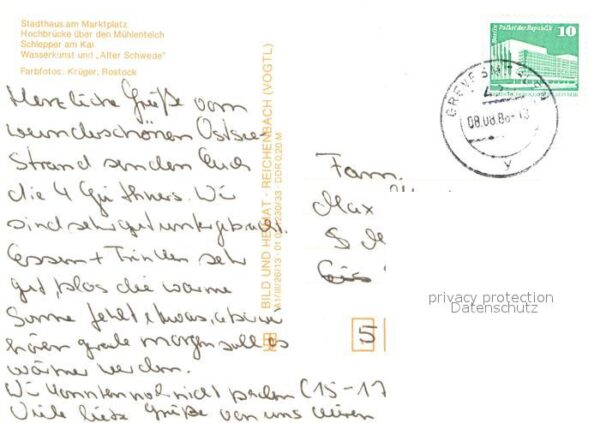 Stadthaus am Marktplatz
Hochbrücke über den Mühlenteich
Schlepper am Kai
Wasserkunst und „Alter Schwede“
Farbfotos: Krüger, Rostock
Herzliche Grüße vom
wunderschönen Ostsee
Strand senden Euch
die 4 Günthers. Wir
sind sehr gut untergebracht.
Essen + Trinken sehr
gut, blos die warme
Sonne fehlt etwas, aber wir
hören gerade morgen soll es
wärmer werden.
Wir konnten noch nicht baden (15-17
Viele liebe Grüße von uns
BILD UND HEIMAT · REICHENBACH (VOGTL)
A1/III/26/13 DDR 0,20 M
Berlin Palast der Republik 10
DDR
GREVESMÜHLEN
08.08.86-13
y
Fam.
Max
5
privacy protection
Datenschutz